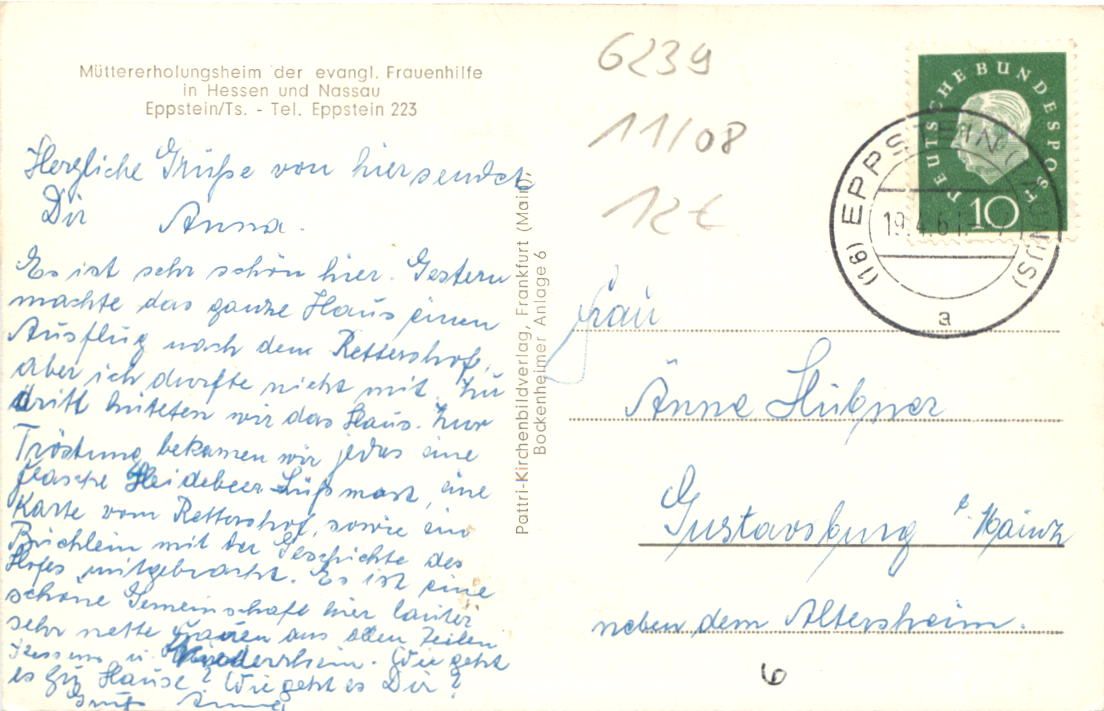 Müttererholungsheim der evangl. Frauenhilfe
in Hessen und Nassau
Eppstein/Ts. - Tel. Eppstein 223
Herzliche Grüße von hier sendet
Dir Anna.
Es ist sehr schön hier. Gestern
machte das ganze Haus einen
Ausflug nach dem Rettershof,
aber ich durfte nicht mit. Zu
dritt hüteten wir das Haus. Zur
Tröstung bekamen wir jedes eine
Flasche Heidebeer-Süßmost, eine
Karte vom Rettershof, sowie ein
Büchlein mit der Geschichte des
Hofes mitgebracht. Es ist eine
schöne Gemeinschaft hier lauter
sehr nette Frauen aus allen Teilen
Hessens u. Niederrhein. Wie geht
es zu Hause? Wie geht es Dir?
Gruß Anna
Pattri-Kirchenbildverlag, Frankfurt (Main),
Bockenheimer Anlage 6
6239
11/08
12€
DEUTSCHE BUNDESPOST
10
(16) EPPSTEIN (TAUNUS)
19.4.61
a
Frau
Änne Hübner
Gustavsburg b. Mainz
neben dem Altersheim.
6